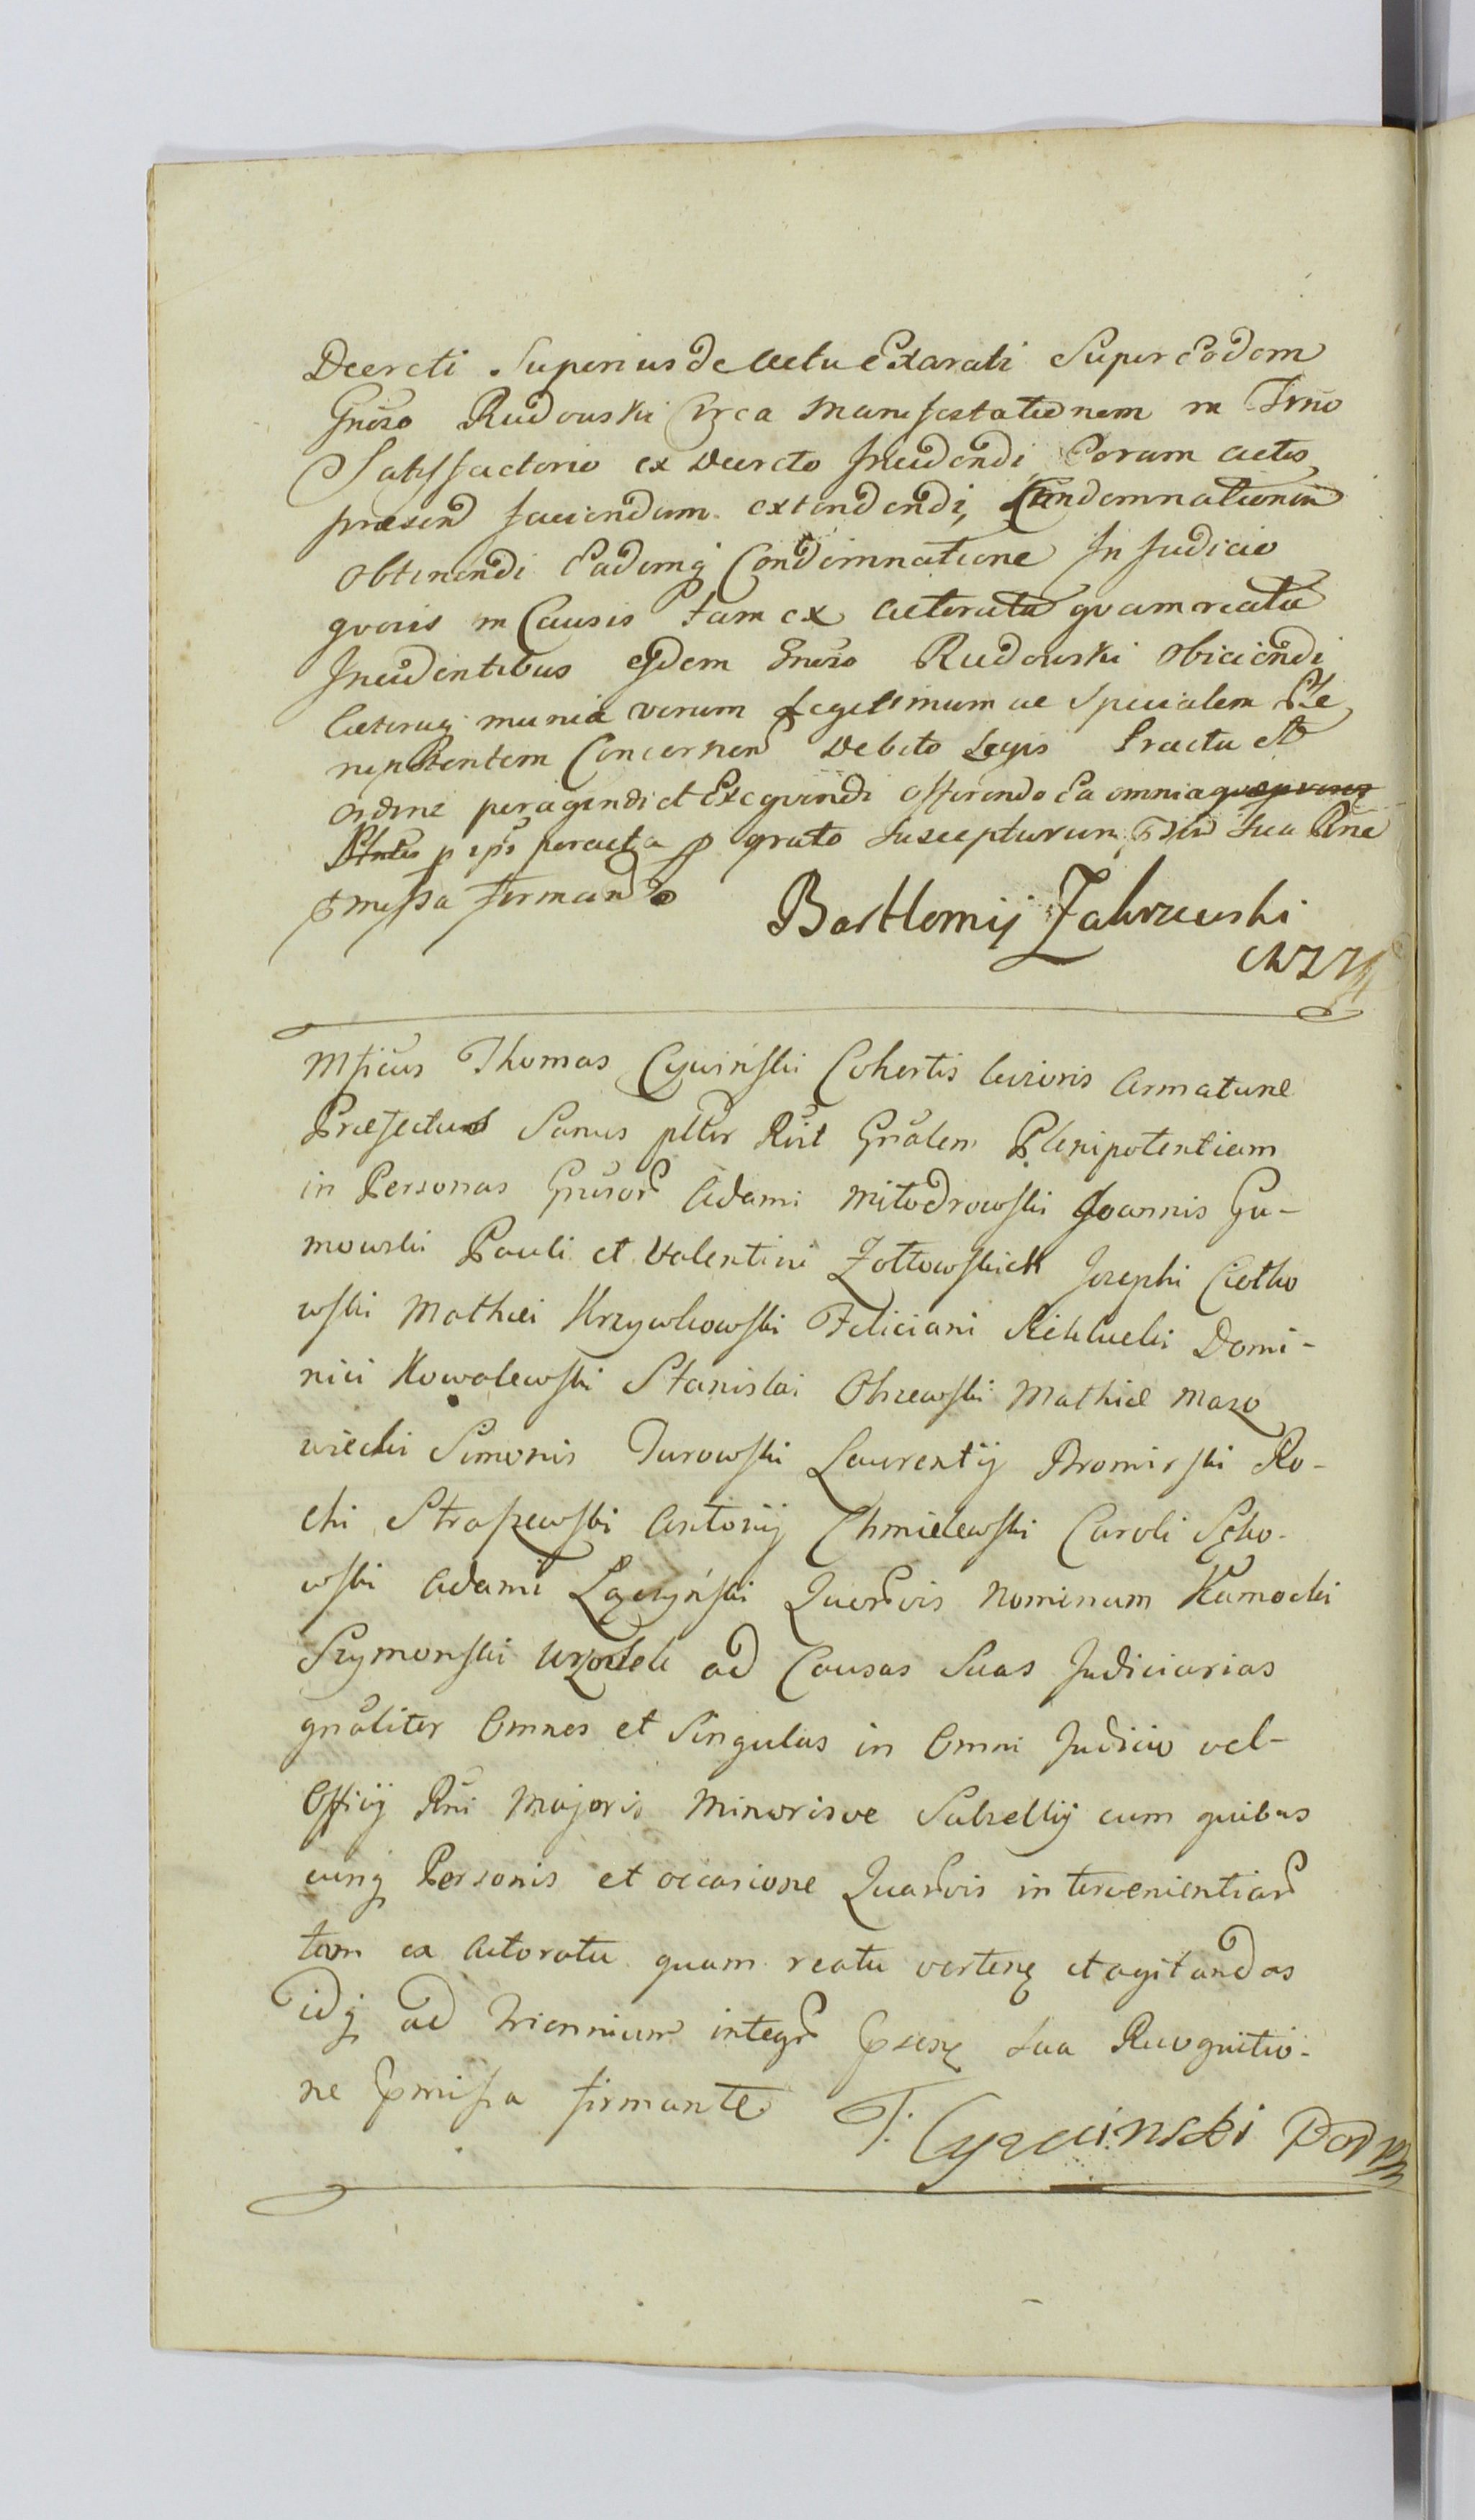 Decreti Superius de Actu Exarati Super Eodem
Gnõso Rudowski Circa Manifestationem in Trno
Satisfactorio ex Decreto Incidendi Coram actis
præsend faciendum extendendi, Condemnationem
Obtinendi Eademq Condemnatione In Judicio
qvovis in Causis tam ex Actoratu qvam reatu
Incidentibus eidem Gnõso Rudowski Obiiciendi
Cæteraq munia verum Legitimum ac Specialem Ple
nipotentem Concernen Debito Legis Tractu et
Ordine peragendi et Exeqvendi offerendo Ea omnia
p ips peracta p grato Suscepturum Sua Rne
pmissa firmando
Bartłomij Zakrzewski
Mficus Thomas Cywiński Cohortis Levioris Armaturæ
Præfectus Sanus ptter Rūt Gnalem Plenipotentiam
in Personas Gnõsor Adami Miłodrowski Joannis Gu-
mowski Pauli et Valentini Zołtowskich Josephi Ciołko
wski Mathæi Krzywkowski Feliciani Domi-
nici Kowalewski Stanislai Olszewski Mathiæ Mazo
wiecki Simonis Turowski Laurentij Bromirski Ro-
chi Straszewski Antonij Chmielewski Caroli Sęko-
wski Adami Łączyński Quorvis Nominum Kamocki
Szymonski ad Causas Suas Judiciarias
gnaliter Omnes et Singulas in Omni Judicio vel-
Officij Rni Majoris Minorisve Subsellij cum quibus
cunq Personis et occasione Quarvis intervenientiar
tam ex Actoratu quam reatu verten et agitandas
idq ad Triennium integr psen Sua Recognitio-
ne pmissa firmante T: Cywinski